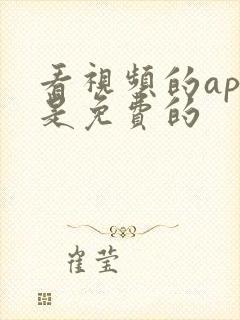 看視頻的ap
是免費的
崔莹